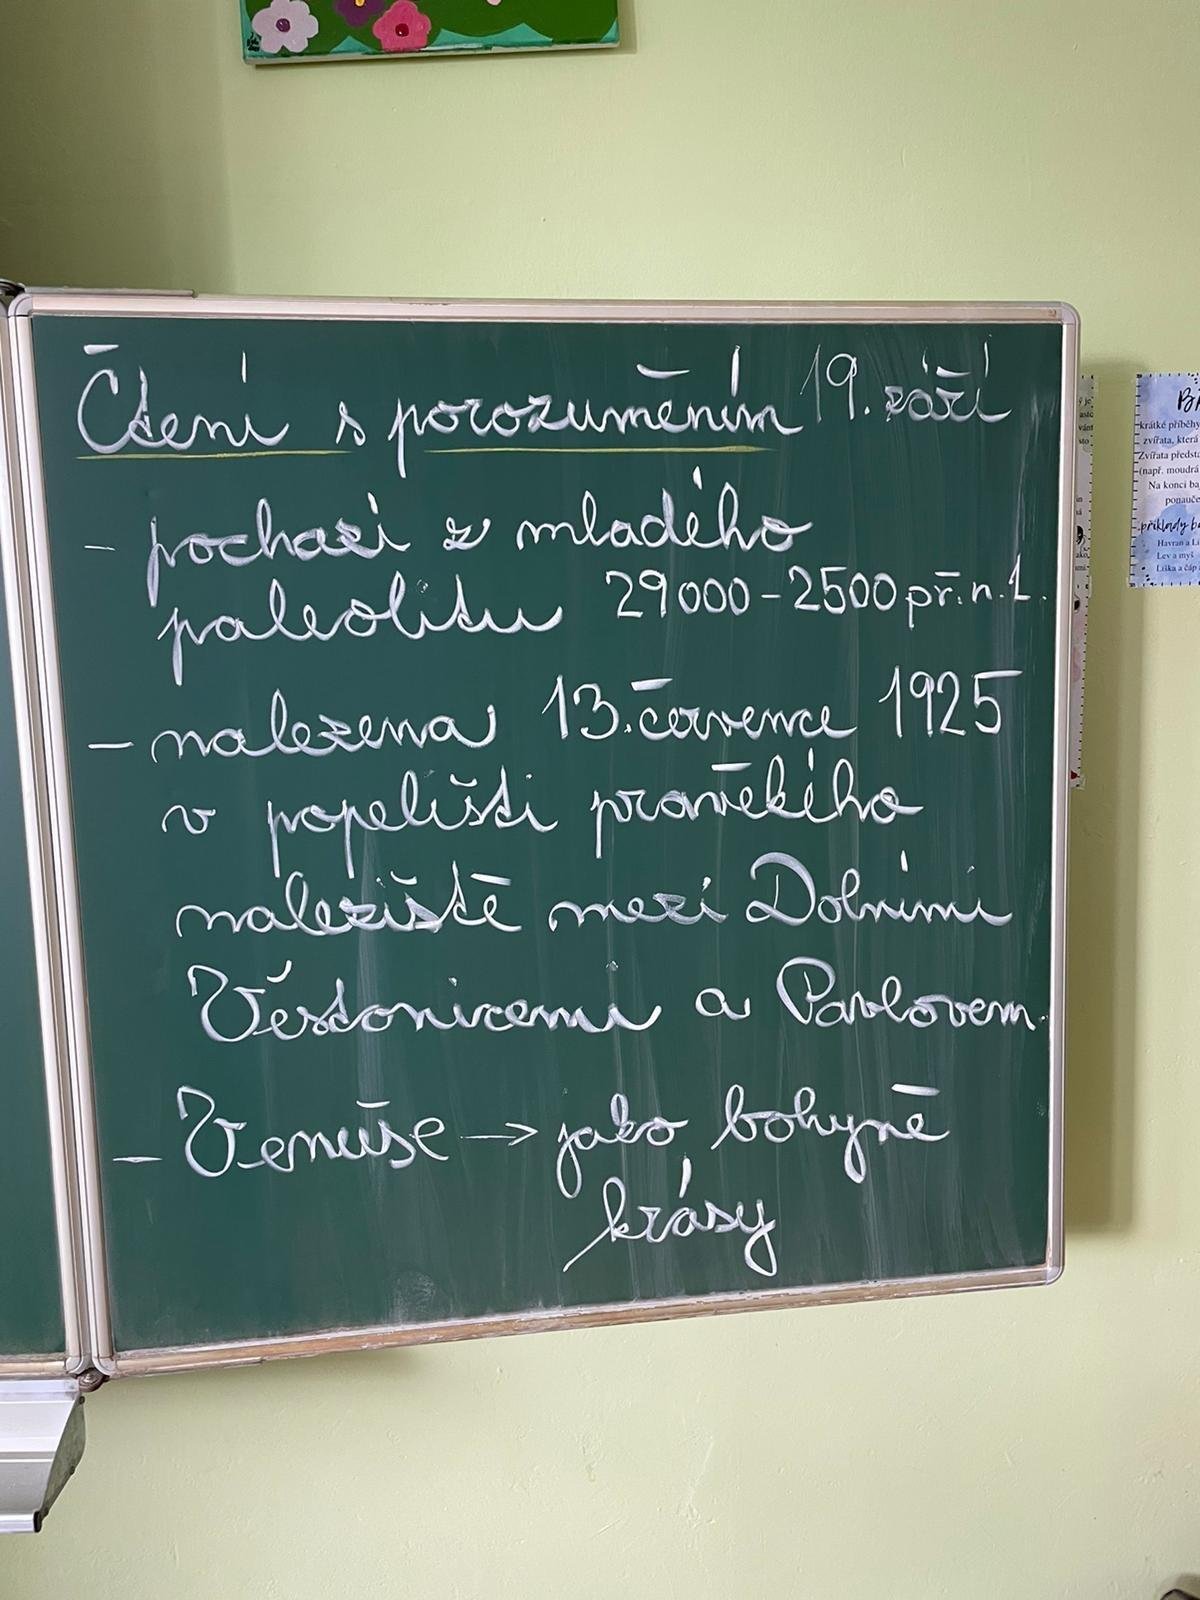 Čtení s porozuměním 19. září
- pochází z mladého
paleolitu 29000-2500 př. n. l.
- nalezena 13. července 1925
v popelišti pravěkého
naleziště mezi Dolními
Věstonicemi a Pavlovem.
- Venuše → jako bohyně
krásy
krátké příběhy
zvířata, která
Zvířata předsta
(např. moudrá
Na konci ba
ponauče
příklady ba
Havran a Li
Lev a myš
Liška a čáp